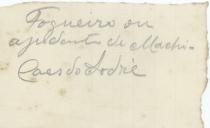 Fogueiro ou
ajudante de Machi-
Caes do Sodré